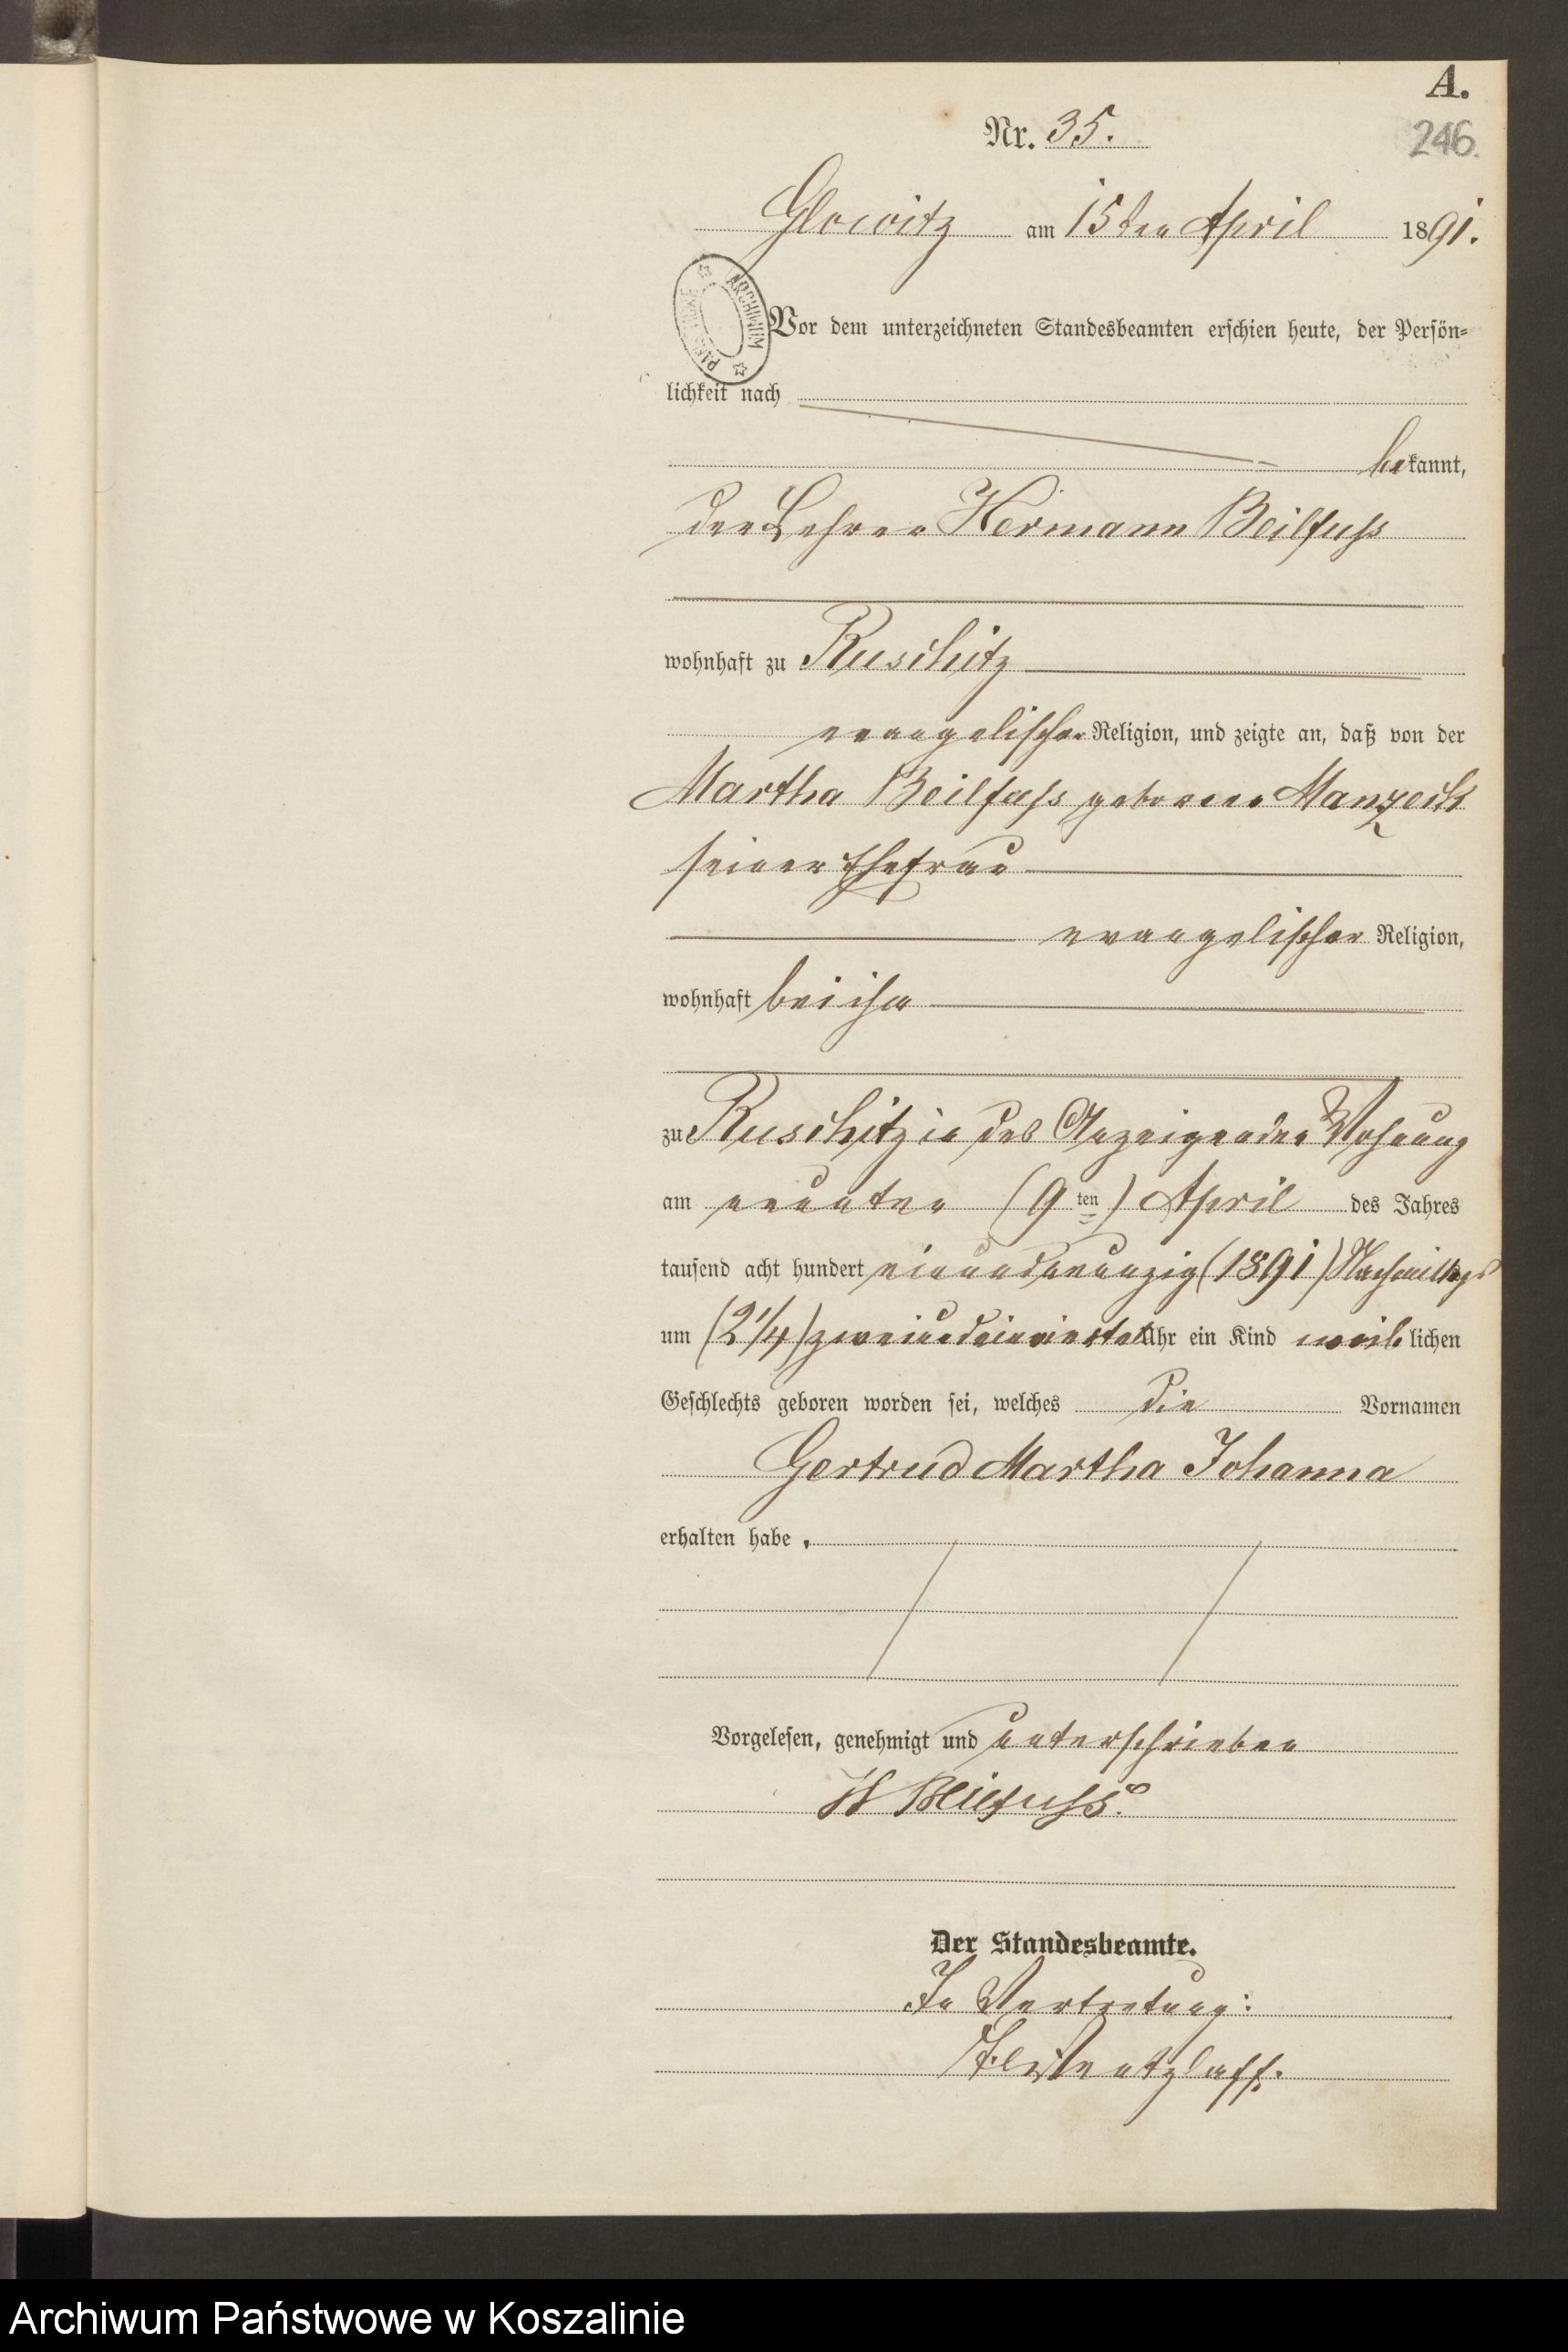 A.
Nr. 35.
246.
Glowitz am 15ten April 1891.
Vor dem unterzeichneten Standesbeamten erschien heute, der Persön-
lichkeit nach
bekannt,
der Lehrer Hermann Beilfuss
wohnhaft zu Ruschitz
evangelischer Religion, und zeigte an, daß von der
Martha Beilfuss geborene Manzeck
seiner Ehefrau
evangelischer Religion,
wohnhaft bei ihm
zu Ruschitz in des Anzeigenden Wohnung
am neunten (9ten) April des Jahres
tausend acht hundert einundneunzig (1891) Nachmittags
um (2 1/4) zweiundeinviertel Uhr ein Kind weiblichen
Geschlechts geboren worden sei, welches die Vornamen
Gertrud Martha Johanna
erhalten habe.
Vorgelesen, genehmigt und unterschrieben
H Beilfuss.
Der Standesbeamte.
In Vertretung:
Wentzlaff.
ARCHIWUM
Archiwum Państwowe w Koszalinie